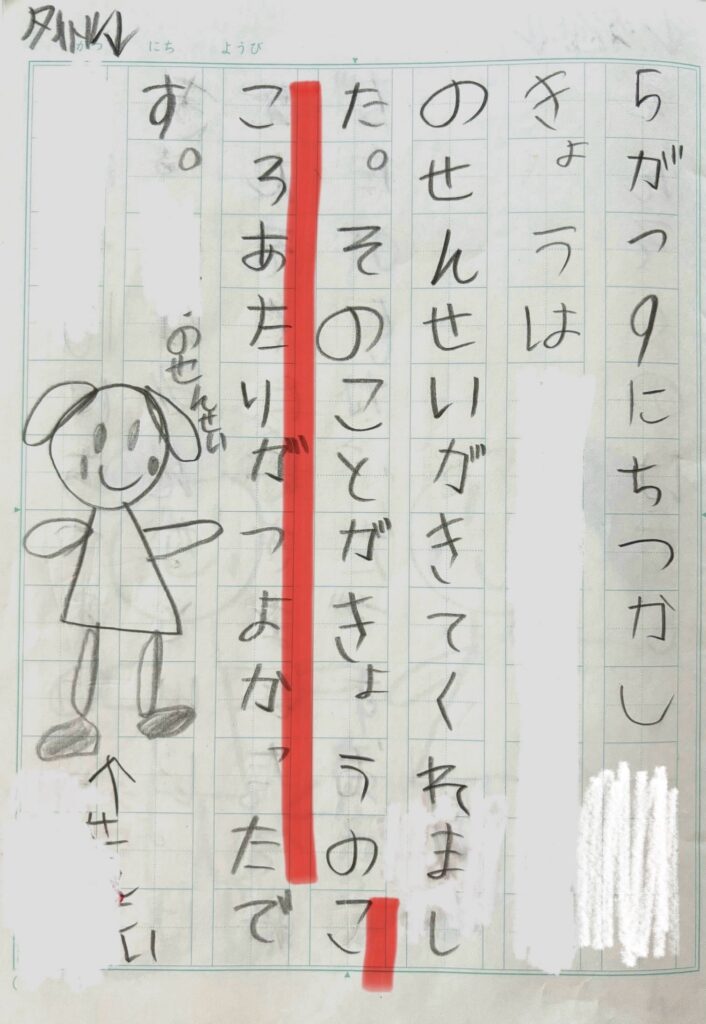 タイトル
にち ようび
5がつ9にちつかし
きょうは
のせんせいがきてくれまし
た。そのことがきょうのこ
ころあたりがつよかったで
す。
のせんせい